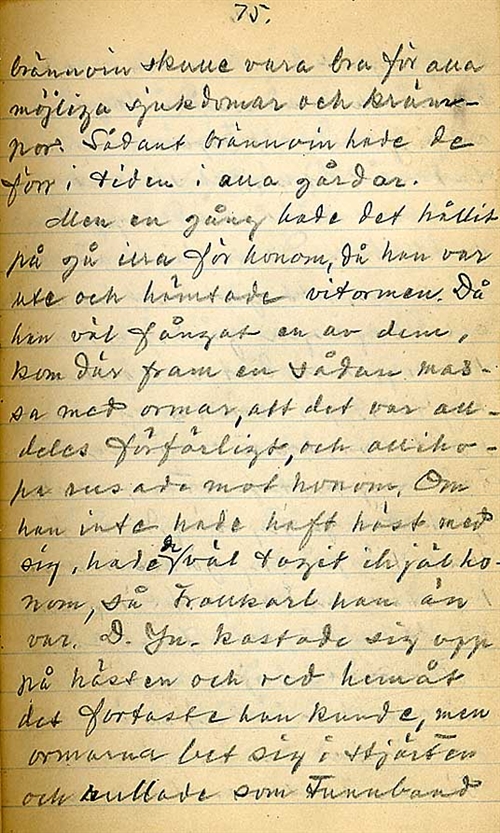 75.
brännvin skulle vara bra för alla
möjliga sjukdomar och kräm-
por. Sådant brännvin hade de
förr i tiden i alla gårdar.
Men en gång hade det hållit
på gå illa för honom, då han var
ute och hämtade vitormen. Då
han väl fångat en av dem,
kom där fram en sådan mas-
sa med ormar, att det var all-
deles förfärligt, och alliho-
pa rusade mot honom. Om
han inte hade haft häst med
sig, hade de väl tagit ihjäl ho-
nom, så trollkarl han än
var. D. Yn. kastade sig upp
på hästen och red hemåt
det fortaste han kunde, men
ormarna bet sig i stjärten
och rullade som tunnband